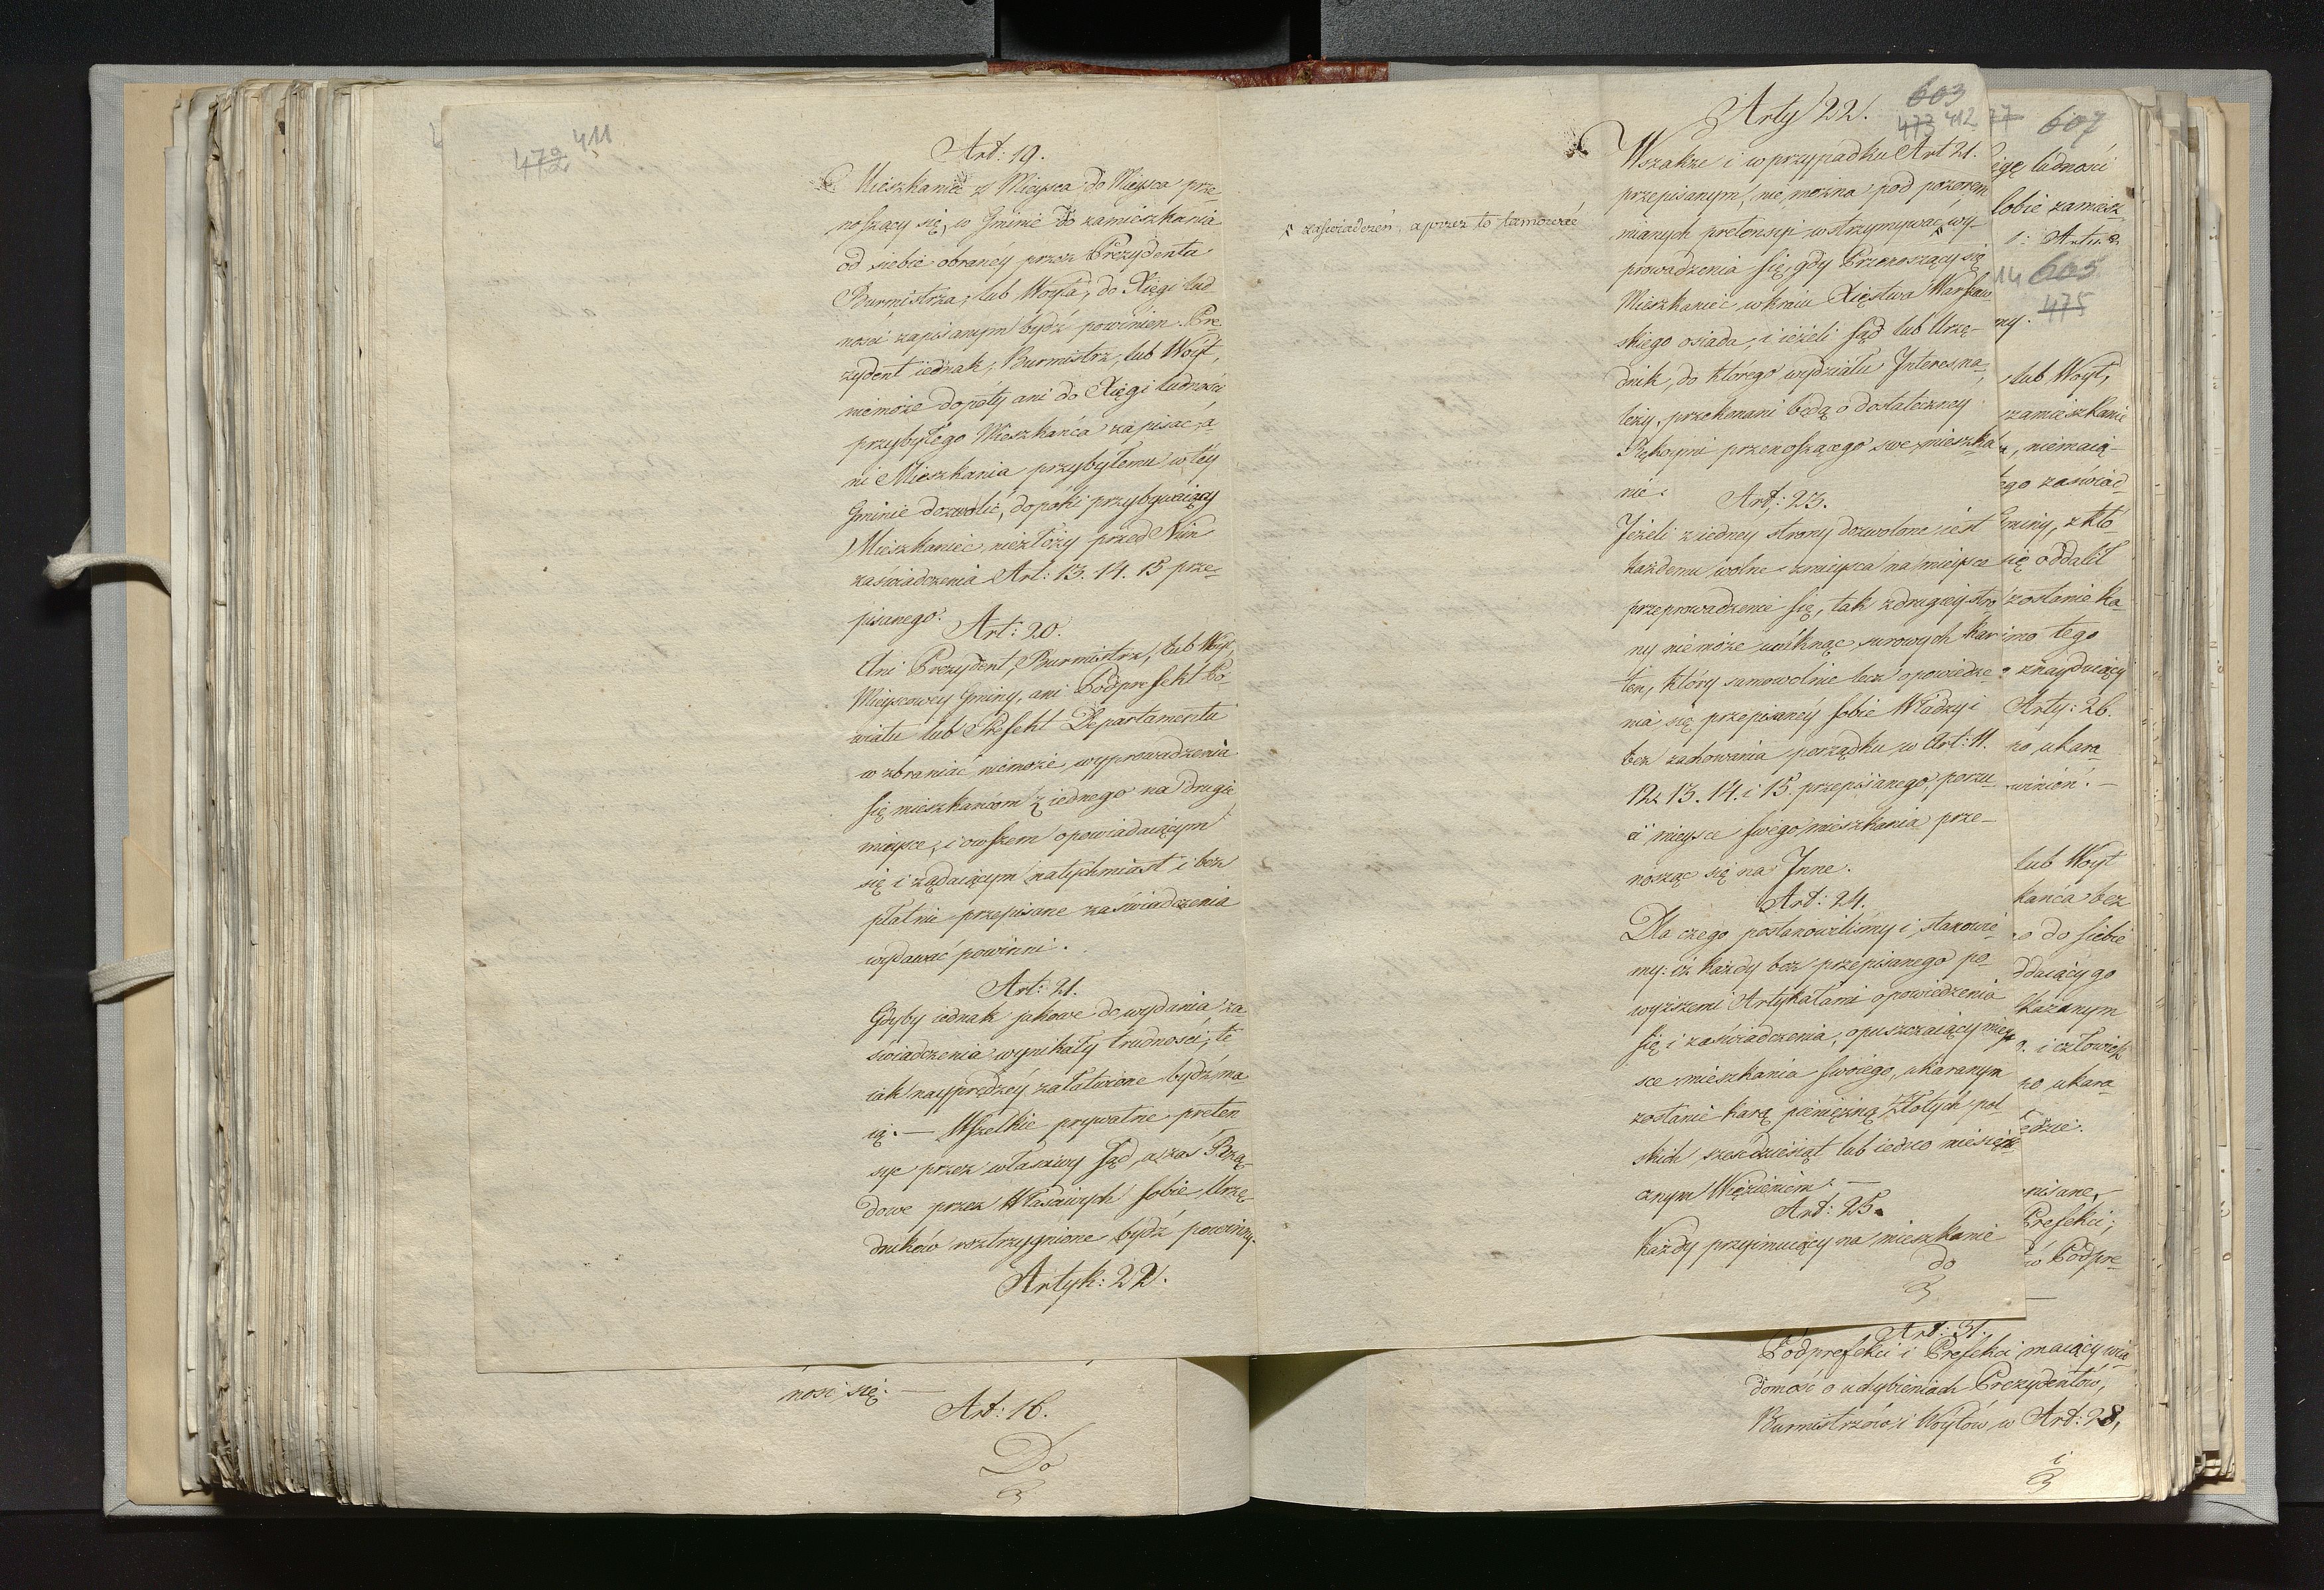 472 411
Art: 19.
Mieszkaniec z Mieysca do Mieysca prze
noszący się, w Gminie do zamieszkania
od siebie obraney przez Prezydenta
Burmistrza, lub Woyta, do Xięgi lud
nosci zapisanym bydź powinien. Pre
zydent iednak, Burmistrz, lub Woyt,
niemoże dopóty ani do Xięgi ludności
przybyłego Mieszkańca zapisać, a
ni Mieszkania przybyłemu w tey
Gminie dozwolić, dopóki przybywaiący
Mieszkaniec niezłoży przed Nim
zaświadczenia Art: 13. 14. 15 prze-
pisanego.
Art: 20.
Ani Prezydent, Burmistrz, lub Woyt,
Mieyscowey Gminy, ani Podprefekt Po-
wiatu lub Prefekt Departamentu
wzbraniać niemoże wyprowadzenia
się mieszkańcom z iednego na drugie
mieysce, i owszem opowiadaiącym
się i żądaiącym natychmiast i bez
płatnie przepisane zaświadczenia
wydawać powinni.
Art: 21.
Gdyby iednak jakowe do wydania za-
świadczenia wynikały trudności, te
iak nayprędzey załatwione bydź ma
ią. — Wszelkie prywatne preten
sye przez właściwy Sąd, a zaś Rzą-
dowe przez Właściwych sobie Urzę-
dników rostrzygnione bydź powinny.
Artyk: 22.
nosi się. —
Art: 16.
Do
603
473 412
Arty 22.
Wszakże i w przypadku Art 21.
przepisanym, nie można pod pozorem
mianych pretensyi wstrzymywać wy-
zaświadczeń, a przez to tamować
prowadzenia się, gdy Przenoszący się
Mieszkaniec w kraiu Xięstwa Warszaw
skiego osiada, i ieżeli Sąd lub Urzę-
dnik, do którego wydziału Interes na-
leży, przekonani będą o dostateczney
Rękoymi przenoszącego swe mieszka
nie.
Art: 23.
Jeżeli z iedney strony dozwolone iest
każdemu wolne z mieysca na mieysce
przeprowadzenie się, tak z drugiey stro
ny niemoże uniknąć surowych kar
ten, który samowolnie bez opowiedze-
nia się przepisaney sobie Władzy i
bez zachowania porządku w Art: 11.
12. 13. 14. i 15. przepisanego, porzu
ci mieysce swego mieszkania prze-
nosząc się na Inne.
Art: 24.
Dla czego postanowiliśmy i stanowie-
my: iż każdy bez przepisanego po-
wyższemi Artykułami opowiedzenia
się i zaświadczenia, opuszczaiący miey
sce mieszkania swoiego, ukaranym
zostanie karą pieniężną Złotych pol
skich sześćdziesiąt lub iedno miesię
cznym Więzieniem. —
Art: 25.
Każdy przyimuiący na mieszkanie
do
77 607
ięgę ludności
sobie zamiesz
14 605
475
ny.
lub Woyt,
zamieszkanie
, niemaią-
ego zaświad
Gminy, z któ
się oddalił
zostanie ka-
imo tego
znayduiący
Arty: 26.
no ukara
winién. —
lub Woyt
kańca bez
do siebie
ddaiący go
kazanym
i człowiek
no ukara
ędzie.
pisane,
Prefekci;
Podpre
Art: 31.
Podprefekci i Prefekci maiący wia
domość o uchybieniach Prezydentów,
Burmistrzów i Woytów w Art: 28,
i